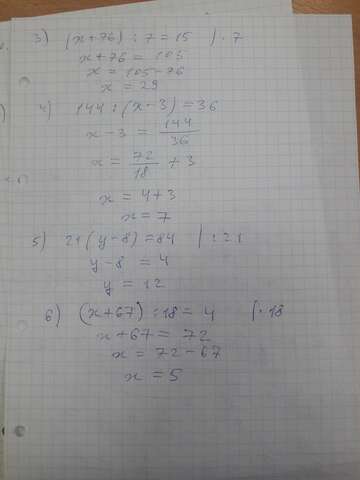 3) (x+76) : 7 = 15 | · 7
x+76 = 105
x = 105-76
x = 29
4) 144 : (x-3) = 36
x-3 = 144/36
x = 72/18 + 3
x = 4+3
x = 7
5) 21(y-8) = 84 | : 21
y-8 = 4
y = 12
6) (x+67) : 18 = 4 | · 18
x+67 = 72
x = 72-67
x = 5